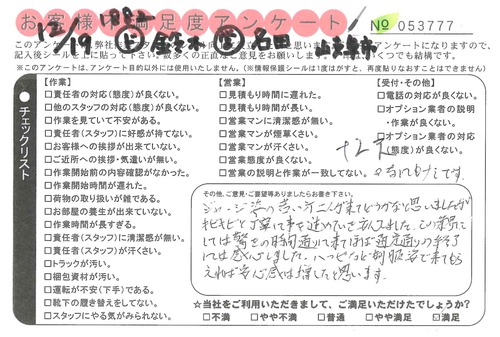 お客様満足度アンケート
№ 053777
12/19
鈴木
名田
このアンケートは、弊社
アンケートになりますので、
記入後シールを上に貼って下さい。数多くの正直なご意見をお願いします。
いくつでも結構です。
※このアンケートは、アンケート目的以外には使用いたしません。(※情報保護シールは1度はがすと、再度貼りなおすことはできません)
チェックリスト
【作業】
□責任者の対応(態度)が良くない。
□他のスタッフの対応(態度)が良くない。
□作業を見ていて不安がある。
□責任者(スタッフ)に好感が持てない。
□お客様への挨拶が出来ていない。
□ご近所への挨拶・気遣いが無い。
□作業開始前の内容確認がなかった。
□作業開始時間が遅れた。
□荷物の取り扱いが雑である。
□お部屋の養生が出来ていない。
□作業時間が長すぎる。
□責任者(スタッフ)に清潔感が無い。
□責任者(スタッフ)が汗くさい。
□トラックが汚い。
□梱包資材が汚い。
□運転が不安(下手)である。
□靴下の履き替えをしてない。
□スタッフにやる気がみられない。
【営業】
□見積もり時間に遅れた。
□見積もり時間が長い。
□営業マンに清潔感が無い。
□営業マンが煙草くさい。
□営業マンが汗くさい。
□営業態度が良くない。
□営業の説明と作業が一致してない。
【受付・その他】
□電話の対応が良くない。
□オプション業者の説明
・作業が良くない。
□オプション業者の対応
(態度)が良くない。
その他、ご意見・ご要望等ありましたらお書き下さい。
ジャージ姿の若い方二人が来てどうかなと思いましたが
キビキビと丁寧に事を進めていき安心しました。この業界に
しては驚きの時間通りに来てほぼ予定通りの終了
には感心しました。ハッピなど制服姿で来てもら
えれば安心感は増したと思います。
☆当社をご利用いただきまして、ご満足いただけたでしょうか?
□不満 □やや不満 □普通 □やや満足 □満足